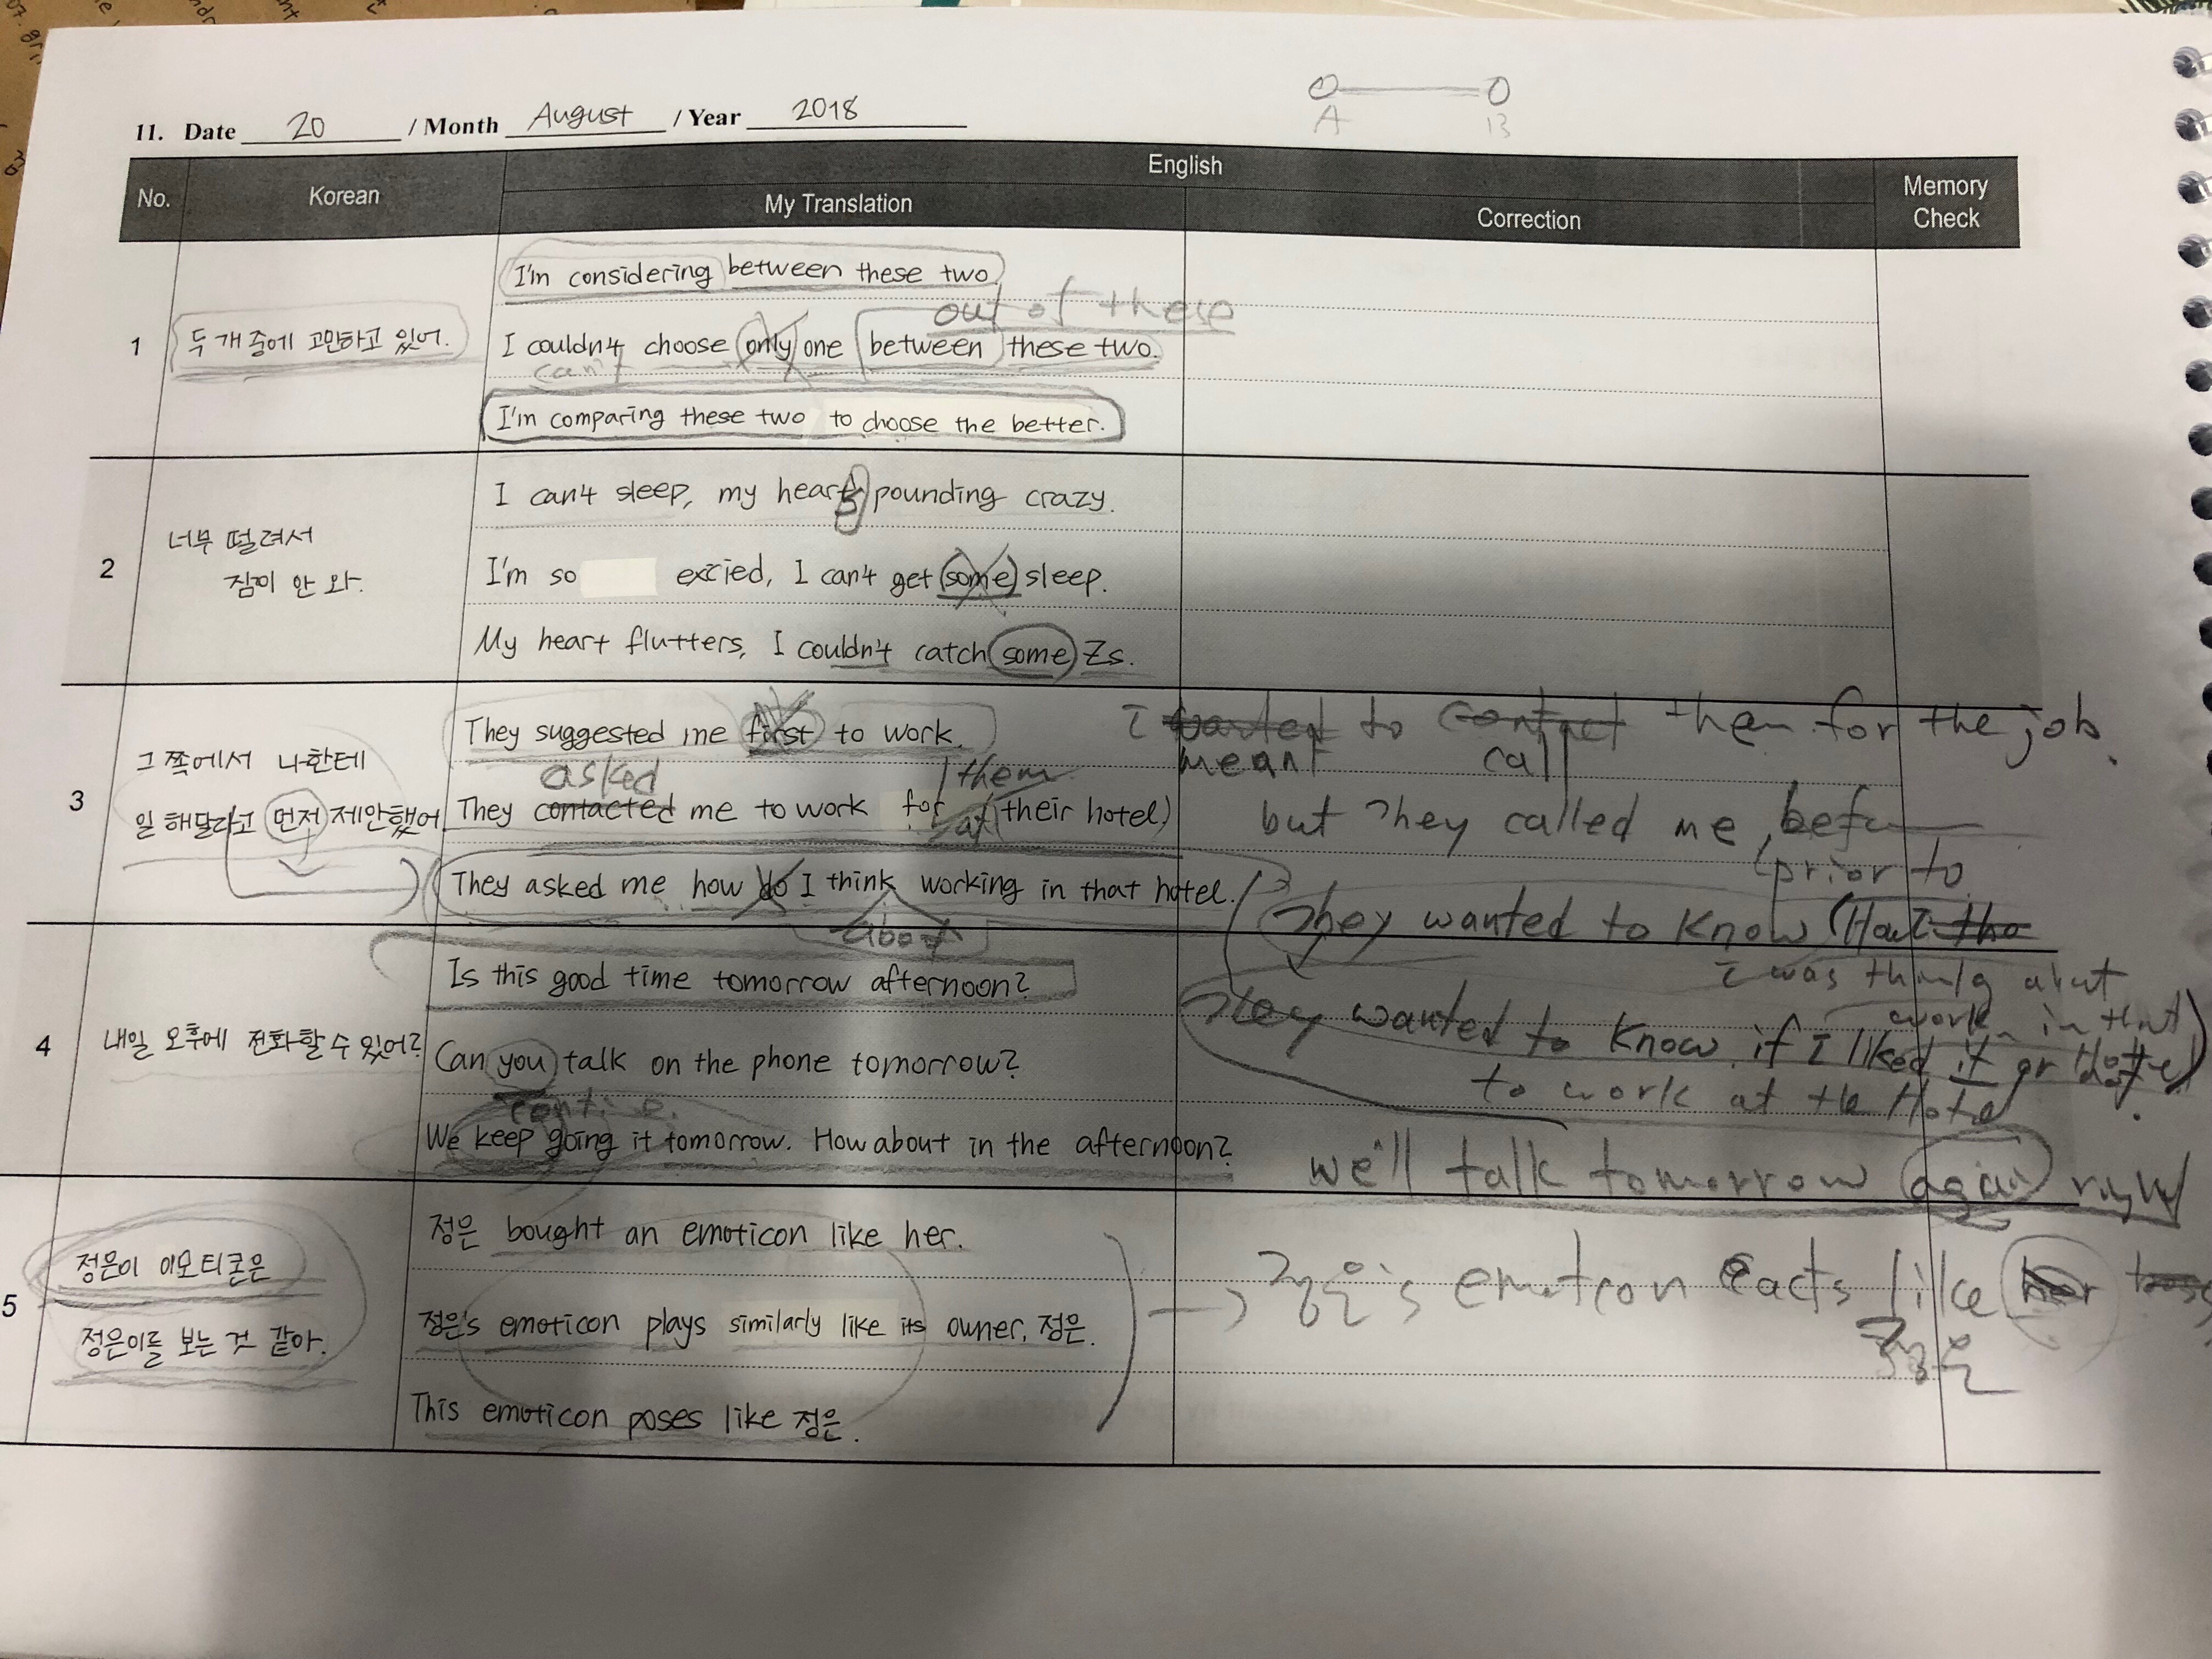 11. Date 20 / Month August / Year 2018
A B
No. Korean English Memory Check
My Translation Correction
1
두 개 중에 고민하고 있어.
I'm considering between these two
out of these
I couldn't choose only one between these two.
can't
I'm comparing these two to choose the better.
2
너무 떨려서
잠이 안 와.
I can't sleep, my heart's pounding crazy.
I'm so excied, I can't get some sleep.
My heart flutters, I couldn't catch some Zs.
3
그 쪽에서 나한테
일 해달라고 먼저 제안했어
They suggested me first to work.
asked them
They contacted me to work for at (their hotel)
They asked me how do I think working in that hotel.
about
I wanted to contact them for the job.
meant call
but They called me,
prior to
They wanted to know
I was about
work in that
They wanted to know if I liked it or
to work at the Hotel
4
내일 오후에 전화할 수 있어?
Is this good time tomorrow afternoon?
Can you talk on the phone tomorrow?
We keep going it tomorrow. How about in the afternoon?
we'll talk tomorrow again
5
정은이 이모티콘은
정은이를 보는 것 같아.
정은 bought an emoticon like her.
정은's emoticon plays similarly like its owner, 정은.
This emoticon poses like 정은.
정은's emoticon acts like her
정은